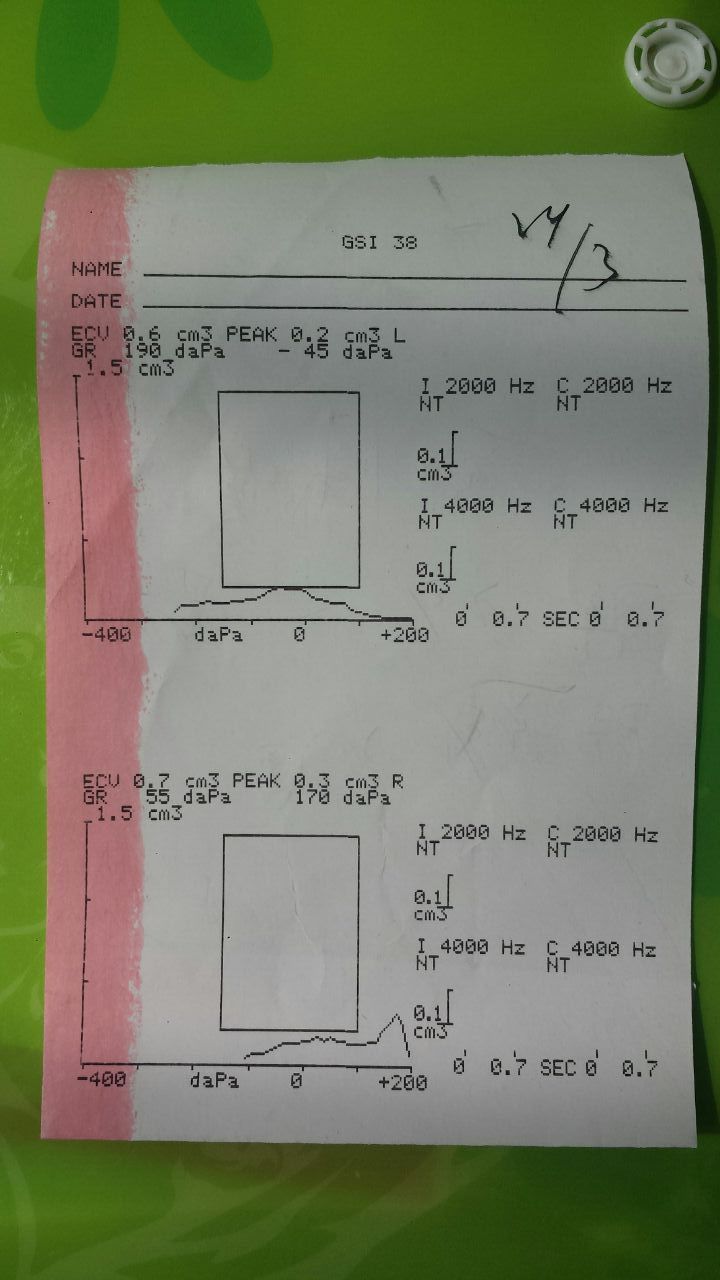 GSI 38
NAME
DATE
ECV 0.6 cm3 PEAK 0.2 cm3 L
GR 190 daPa - 45 daPa
1.5 cm3
I 2000 Hz C 2000 Hz
NT NT
0.1
cm3
I 4000 Hz C 4000 Hz
NT NT
0.1
cm3
-400 daPa 0 +200
0 0.7 SEC 0 0.7
ECV 0.7 cm3 PEAK 0.3 cm3 R
GR 55 daPa 170 daPa
1.5 cm3
I 2000 Hz C 2000 Hz
NT NT
0.1
cm3
I 4000 Hz C 4000 Hz
NT NT
0.1
cm3
-400 daPa 0 +200
0 0.7 SEC 0 0.7